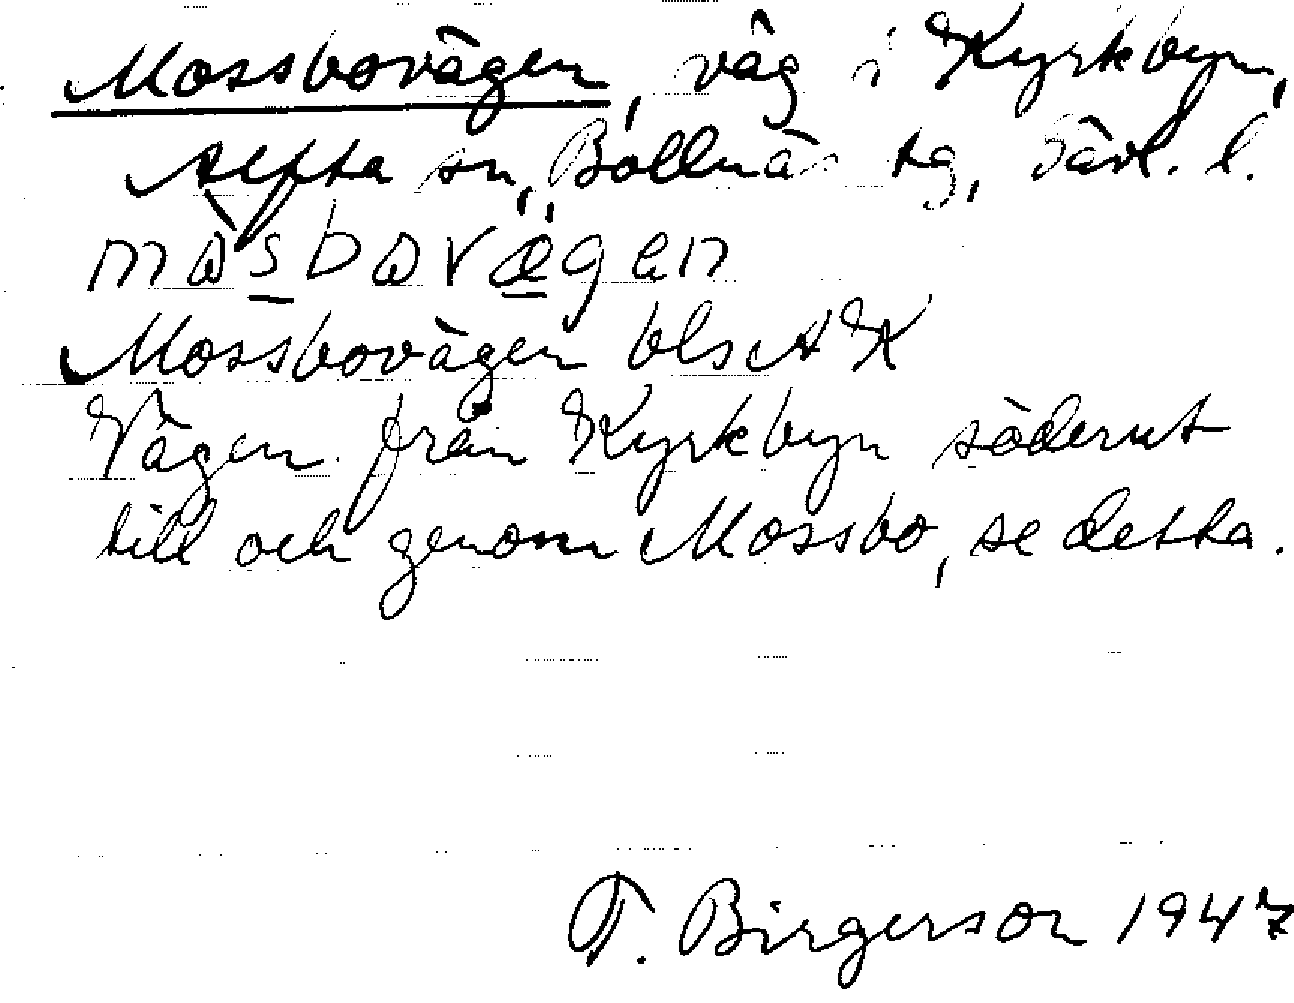 Mossbovägen, väg i Kyrkbyn,
Alfta sn, Bollnäs tg, Gävl. l.
mòsbovägen
Mossbovägen bls AK
Vägen från Kyrkbyn söderut
till och genom Mossbo, se detta.
T. Birgerson 1947